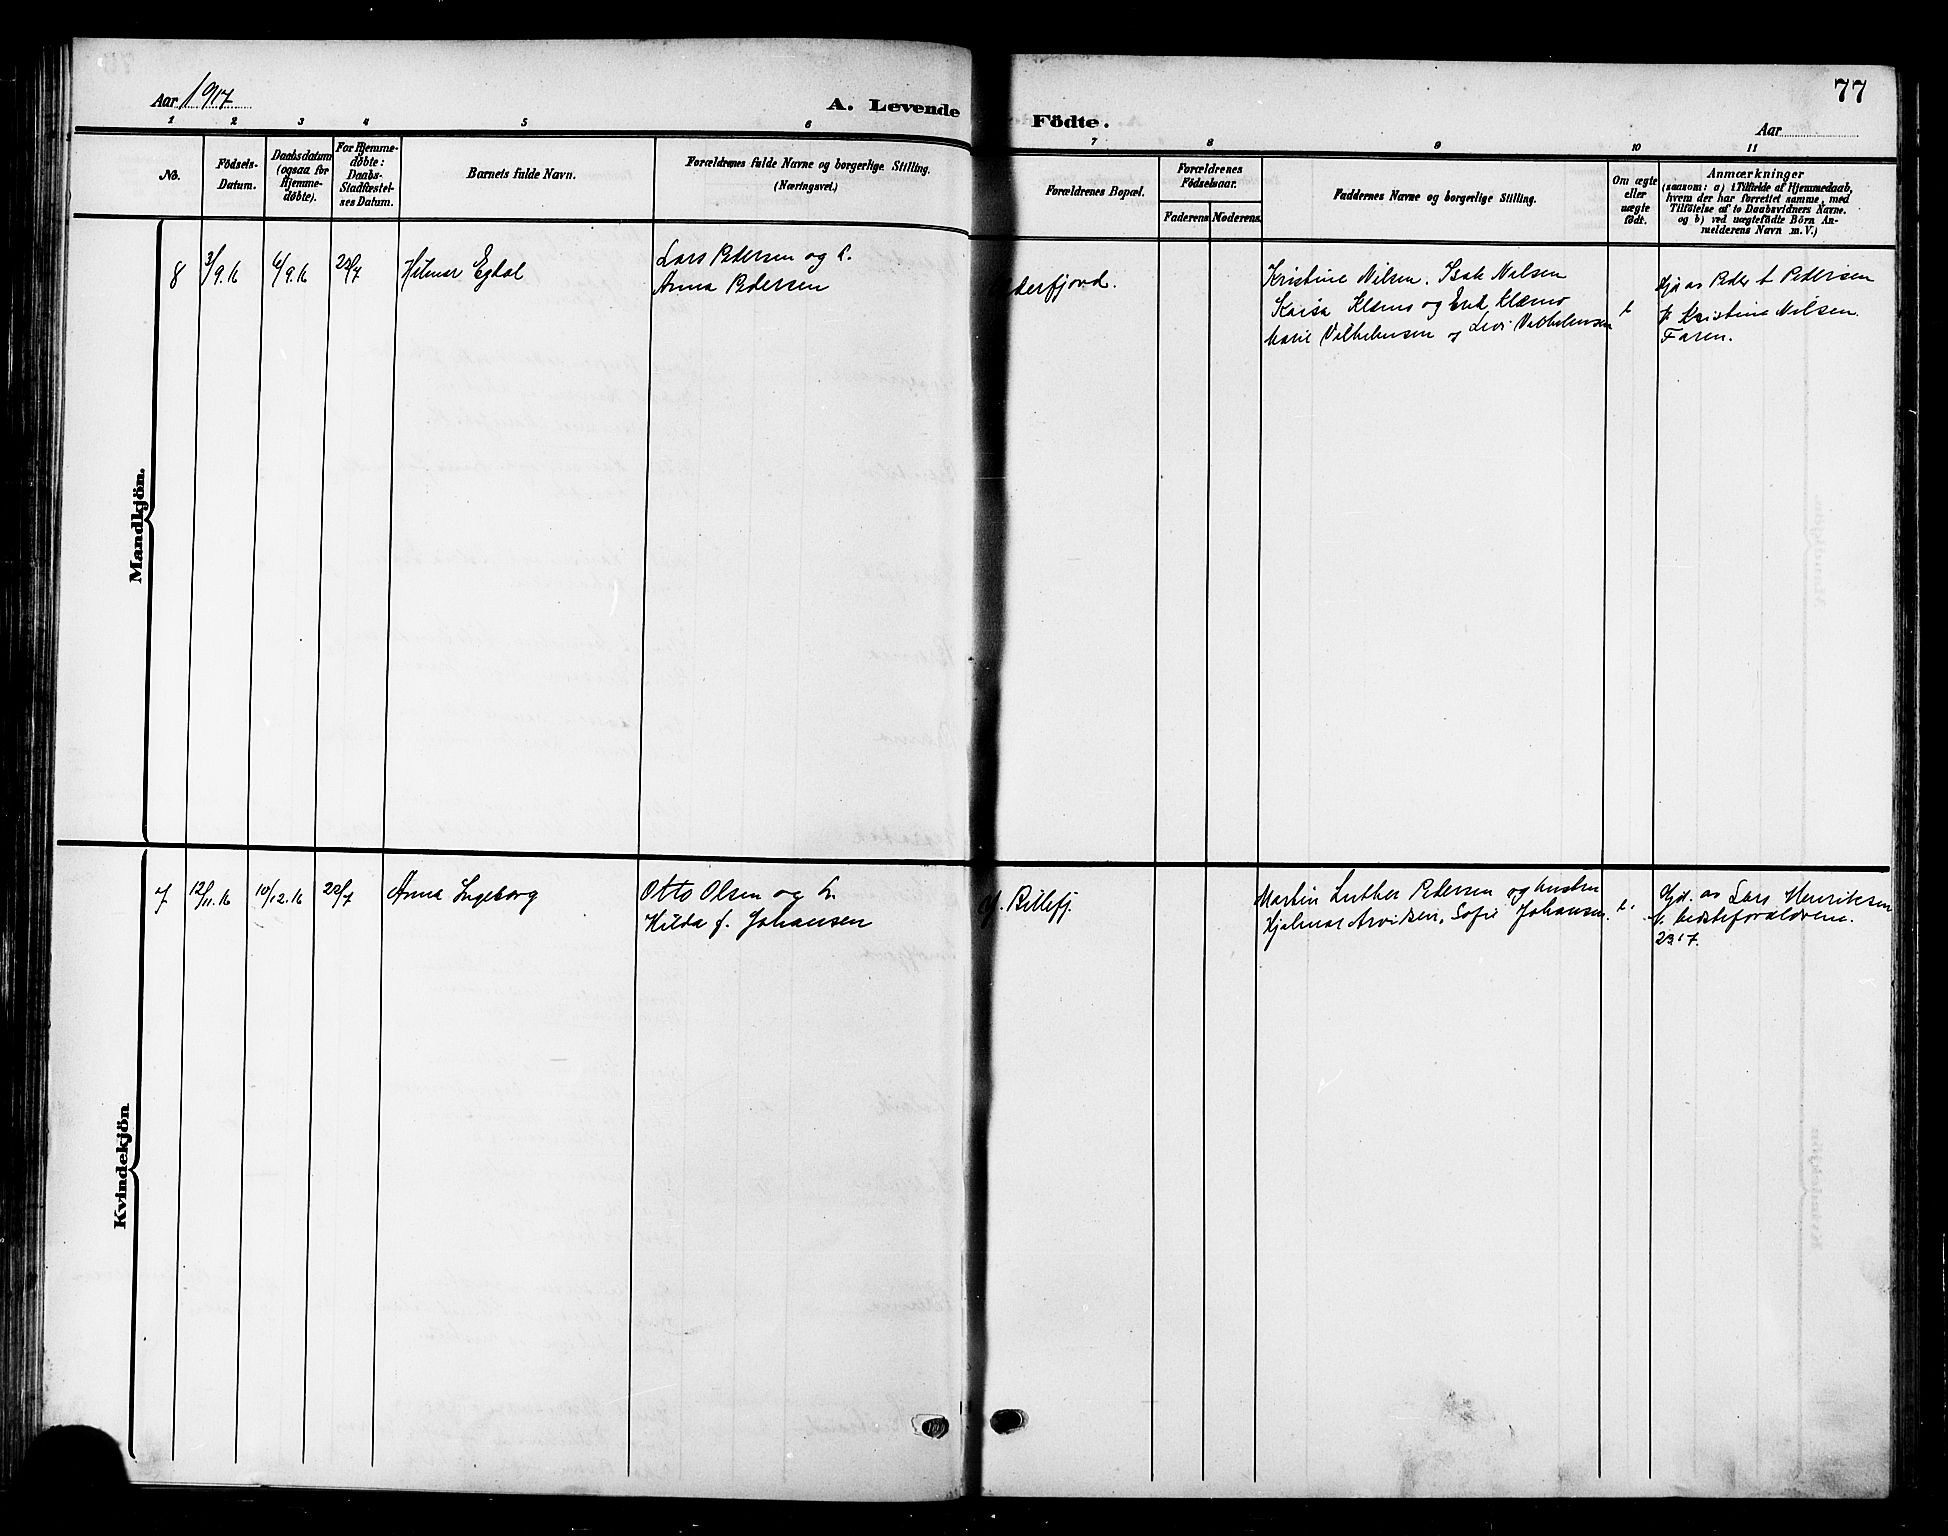 Aar 1917
A. Levende Födte.
77
Aar
1 2 3 4 5 6 7 8 9 10 11
No.
Födsels-
Datum.
Daabsdatum
(ogsaa for
Hjemme-
døbte).
For Hjemme-
døbte:
Daabs-
Stadfæstel-
ses Datum.
Barnets fulde Navn.
Forældrenes fulde Navne og borgerlige Stilling.
(Næringsvei.)
Forældrenes Bopæl.
Forældrenes
Födselsaar.
Faderens Moderens.
Faddernes Navne og borgerlige Stilling.
Om ægte
eller
uægte
födt.
Anmærkninger
(saasom: a) i Tilfælde af Hjemmedaab,
hvem der har forrettet samme, med
Tilföielse af to Daabsvidners Navne.
og b) ved uægtefödte Börn An-
melderens Navn m. V.)
Mandkjön.
8 3/9.16 6/9.16 22/7 Hilmar Egdal
Lars Pedersen og h.
Anna Pedersen
derfjord.
Kristine Nilsen. Isak Nilsen
Kaisa Klemo og Erik Klæmo
Marie Vilhelmsen og Levi Vilhelmsen
Hjd av Peder Pedersen
Kristine Nilsen.
Faren.
Kvindekjön
7 12/11.16 10/12.16 22/7 Anna Ingeborg
Otto Olsen og h.
Hilda f. Johansen
Billefj.
Martin Luther Pedersen og hustru
Hjalmar Arvidsen, Sofie Johansen.
Hjd. av Lars Henriksen
bedsteforældrene.